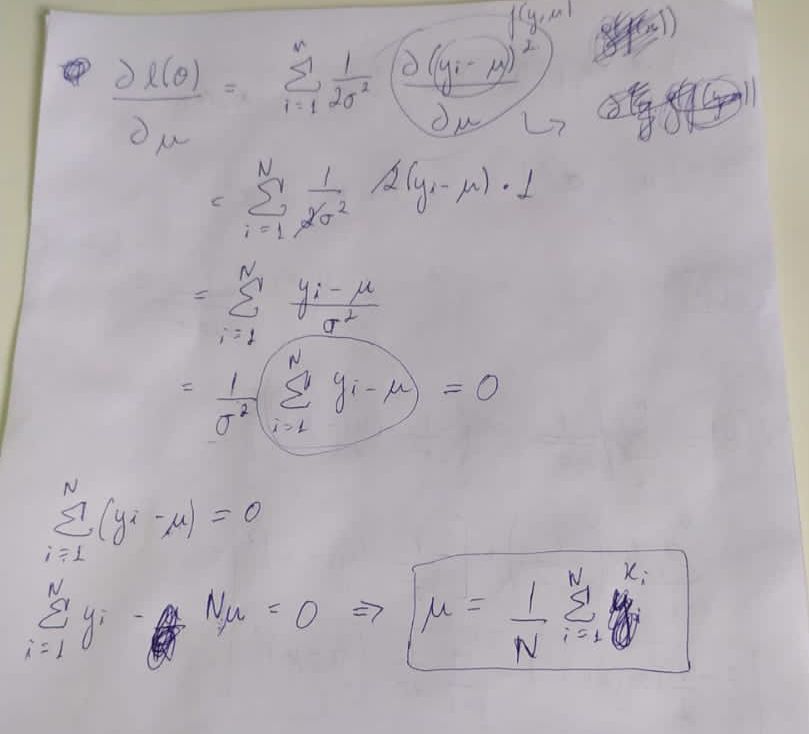 f(y, μ)
∂ℓ(θ)/∂μ = Σ_{i=1}^{n} 1/2σ² ∂(yi - μ)²/∂μ ↳
= Σ_{i=1}^{N} 1/2σ² 2(yi - μ) · 1
= Σ_{i=1}^{N} yi - μ/σ²
= 1/σ² Σ_{i=1}^{N} yi - μ = 0
Σ_{i=1}^{N} (yi - μ) = 0
Σ_{i=1}^{N} yi - Nμ = 0 ⇒ μ = 1/N Σ_{i=1}^{N} xi